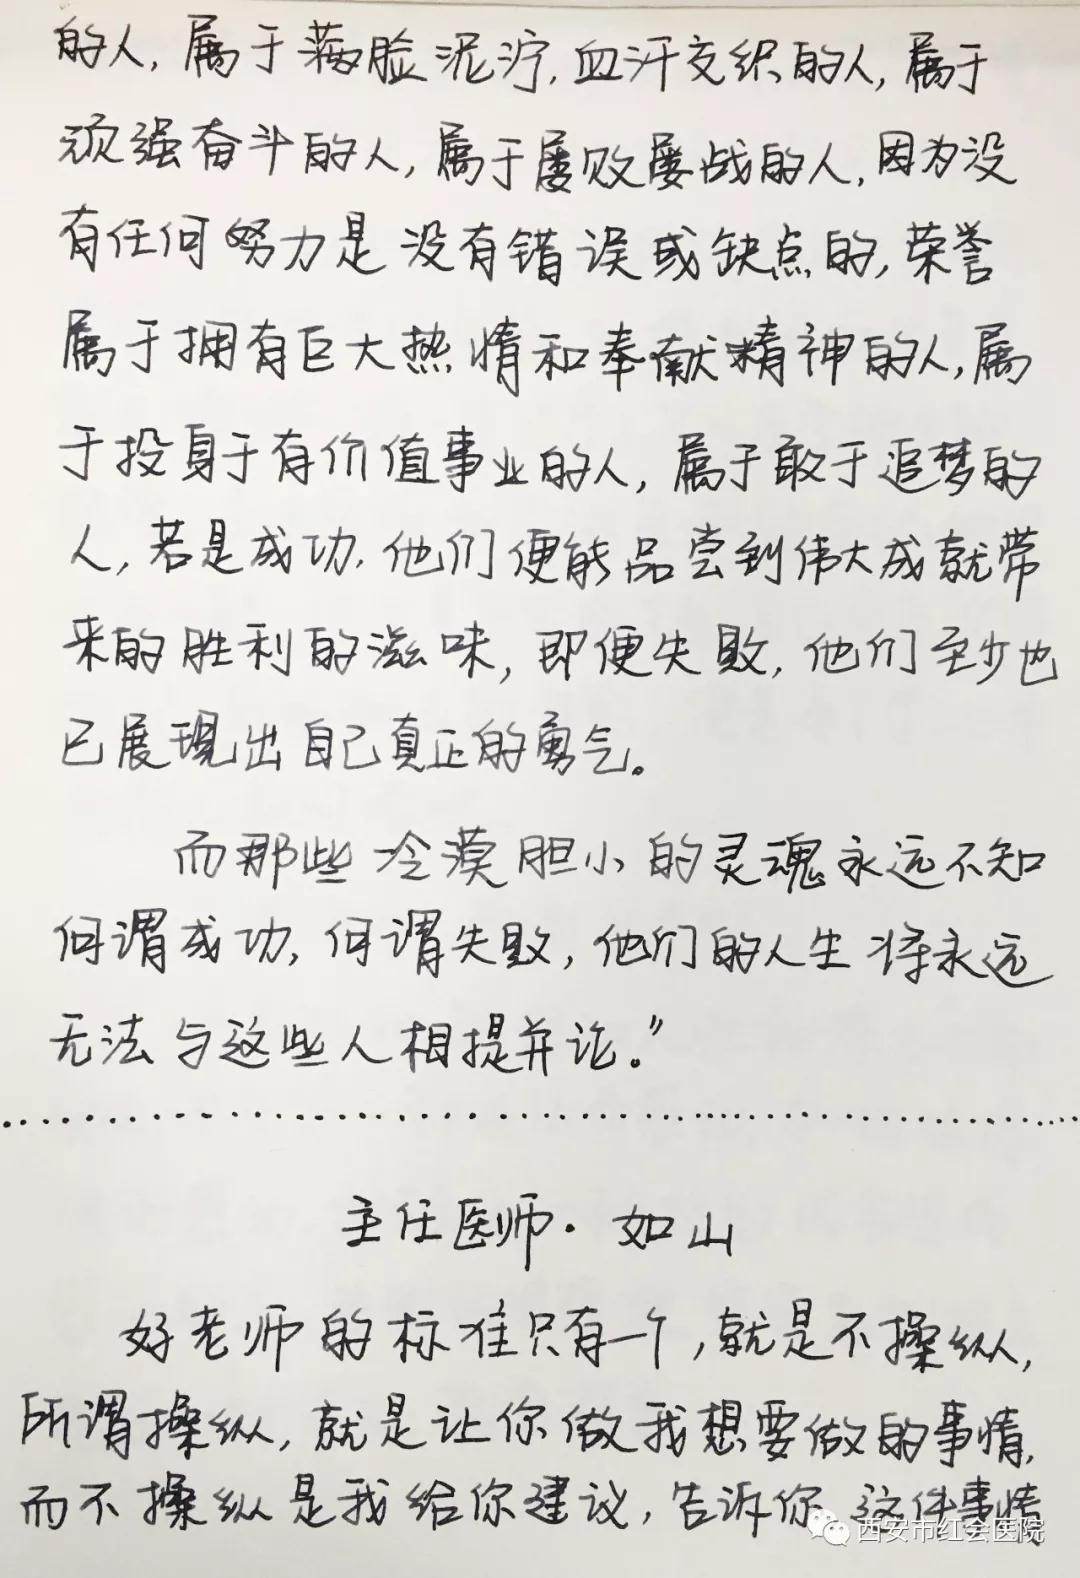 的人,属于满脸泥泞,血汗交织的人,属于
顽强奋斗的人,属于屡败屡战的人,因为没
有任何努力是没有错误或缺点的,荣誉
属于拥有巨大热情和奉献精神的人,属
于投身于有价值事业的人,属于敢于追梦的
人,若是成功,他们便能品尝到伟大成就带
来的胜利的滋味,即便失败,他们至少也
已展现出自己真正的勇气。
而那些冷漠胆小的灵魂永远不知
何谓成功,何谓失败,他们的人生将永远
无法与这些人相提并论。”
主任医师·如山
好老师的标准只有一个,就是不操纵,
所谓操纵,就是让你做我想要做的事情,
而不操纵是我给你建议,告诉你这件事情
西安市红会医院